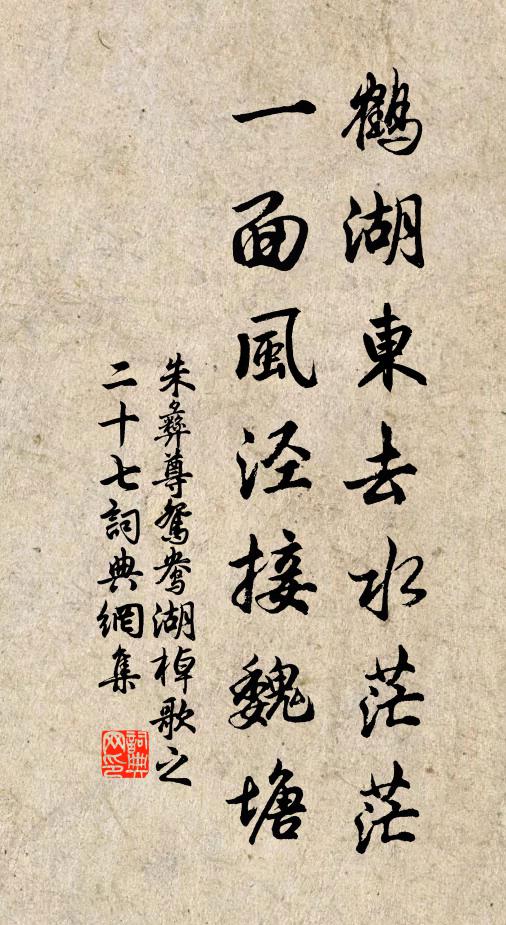 鶴湖東去水茫茫
一面風泾接魏塘
朱彝尊鴛鴦湖棹歌之
二十七詞典網集
詞典
网印